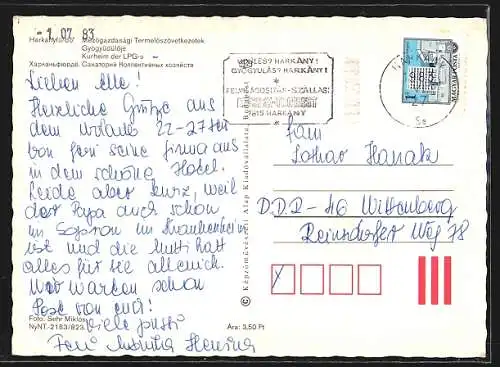 -1.07.83
Harkányfürdő Mezőgazdasági Termelőszövetkezetek
Gyógyüdülője
Kurheim der LPG-s
Харканьфюрдо Санаторий Коллективных хозяйств
Lieben alle!
Herzliche Grüße aus
dem Urlaub 22-27ten
von Feri seine Firma aus
in dem schöne Hotel.
Leide aber kurz, weil
der Papa auch schon
im Sopron im Krankenheim
ist und die Mutti hatt
alles für sie alleinich.
Wir warten schon
Post von euch!
viele
Feri
Foto: Sehr Miklós
NyNT.-2183/823
Ára: 3,50 Ft
© Képzőművészeti Alap Kiadóvállalata, Budapest
HARKÁNY!
GYÓGYULÁS? HARKÁNY!
7815 HARKÁNY
MAGYAR POSTA
Fam
Lothar Hanak
DDR-46 Wittenberg
Reinsdorfer Weg 78